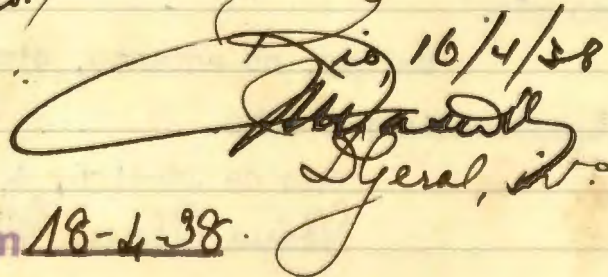 Rio, 16/4/38
DGeral, in.º
m 18-4-38.